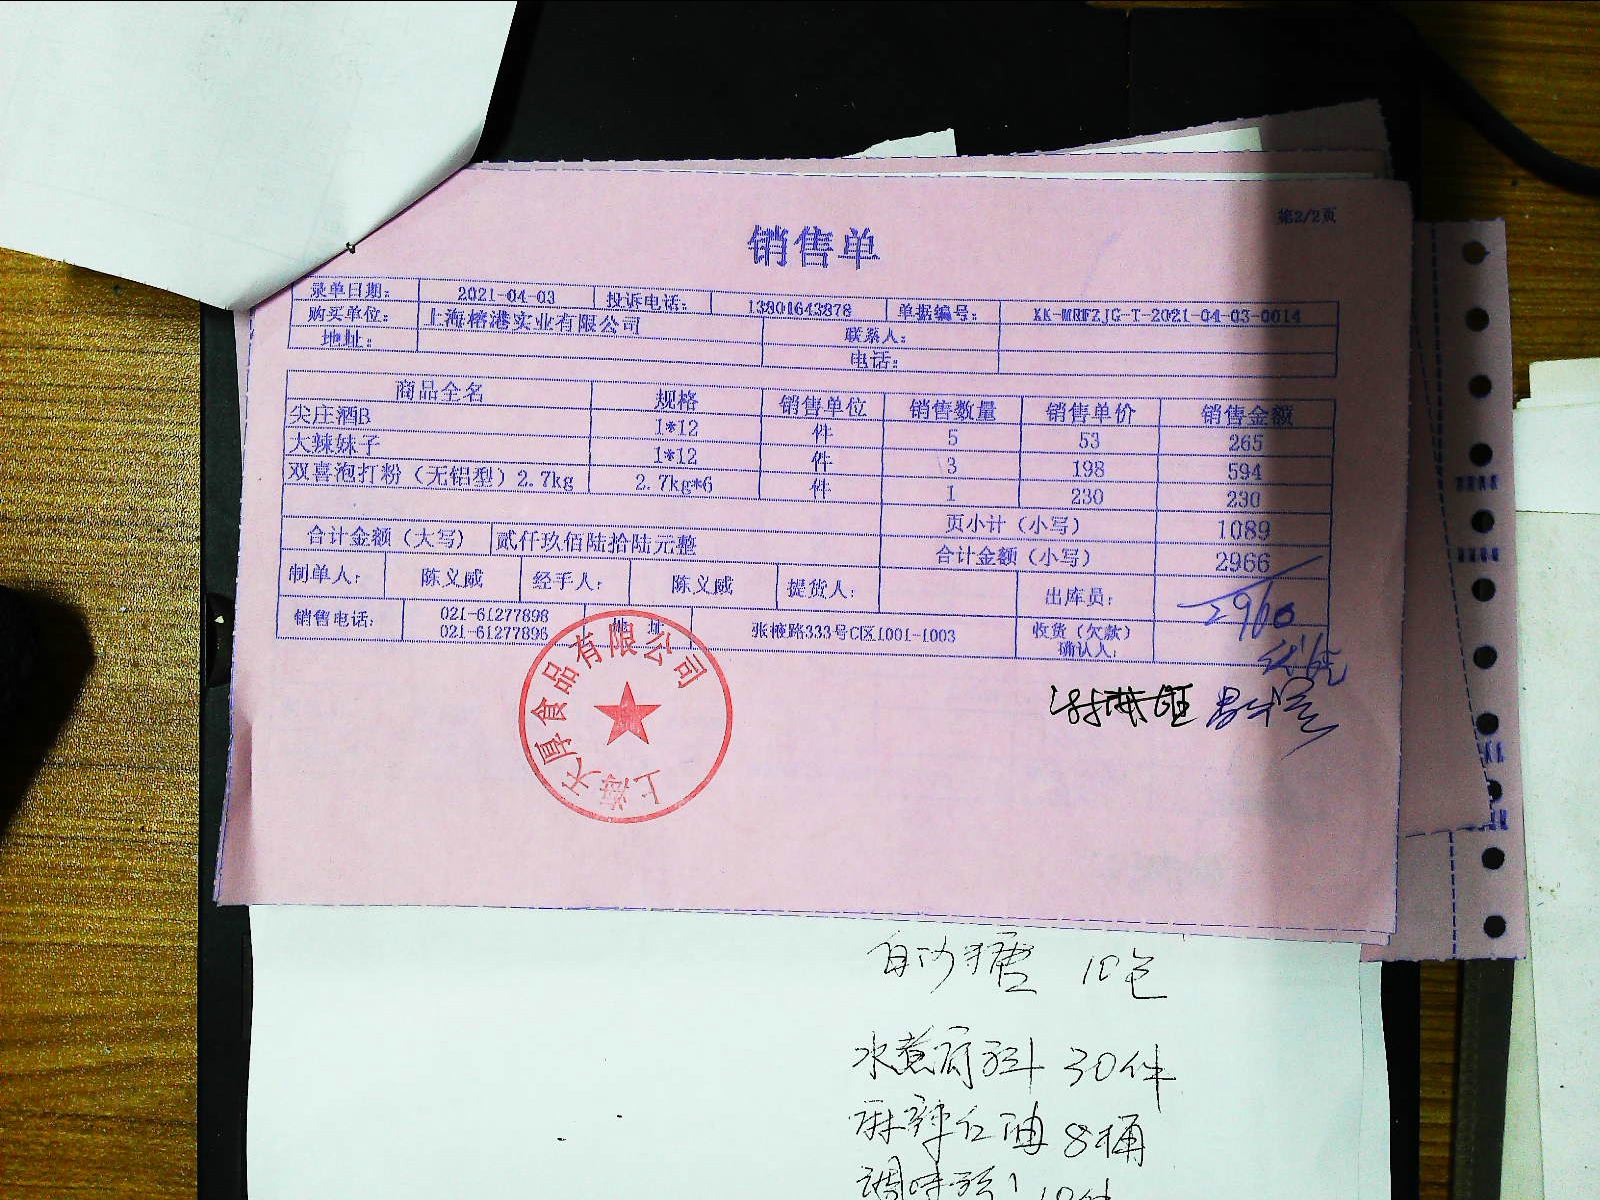 第2/2页
销售单
录单日期： 2021-04-03 投诉电话： 13801643878 单据编号： KK-MRFZJG-T-2021-04-03-0014
购买单位： 上海榕港实业有限公司 联系人：
地址： 电话：
商品全名 规格 销售单位 销售数量 销售单价 销售金额
尖庄酒B 1*12 件 5 53 265
大辣妹子 1*12 件 3 198 594
双喜泡打粉（无铝型）2.7kg 2.7kg*6 件 1 230 230
页小计（小写） 1089
合计金额（大写） 贰仟玖佰陆拾陆元整 合计金额（小写） 2966
制单人： 陈义威 经手人： 陈义威 提货人： 出库员：
2960
销售电话： 021-61277898 021-61277896 地 址 张掖路333号C区1001-1003 收货（欠款）确认人：
上海天厚食品有限公司
白沙糖 10包
水煮 30件
麻辣红油 8桶
调味